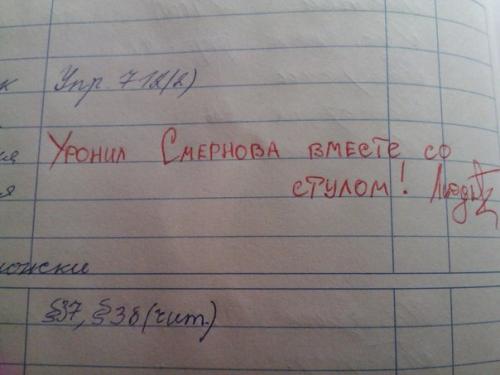 Упр. 712(2)
Уронил Смернова вместе со
стулом!
§37, §38 (чит.)